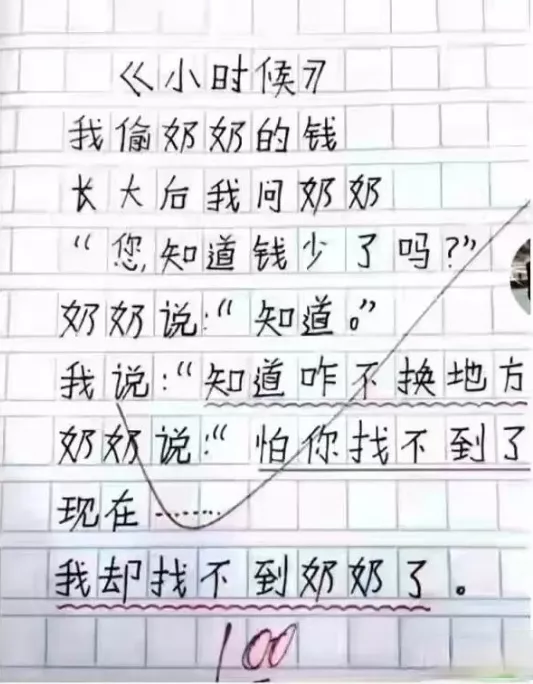 《小时候》
我偷奶奶的钱
长大后我问奶奶
“您知道钱少了吗?”
奶奶说:“知道。”
我说:“知道咋不换地方
奶奶说:“怕你找不到了
现在………
我却找不到奶奶了。
100